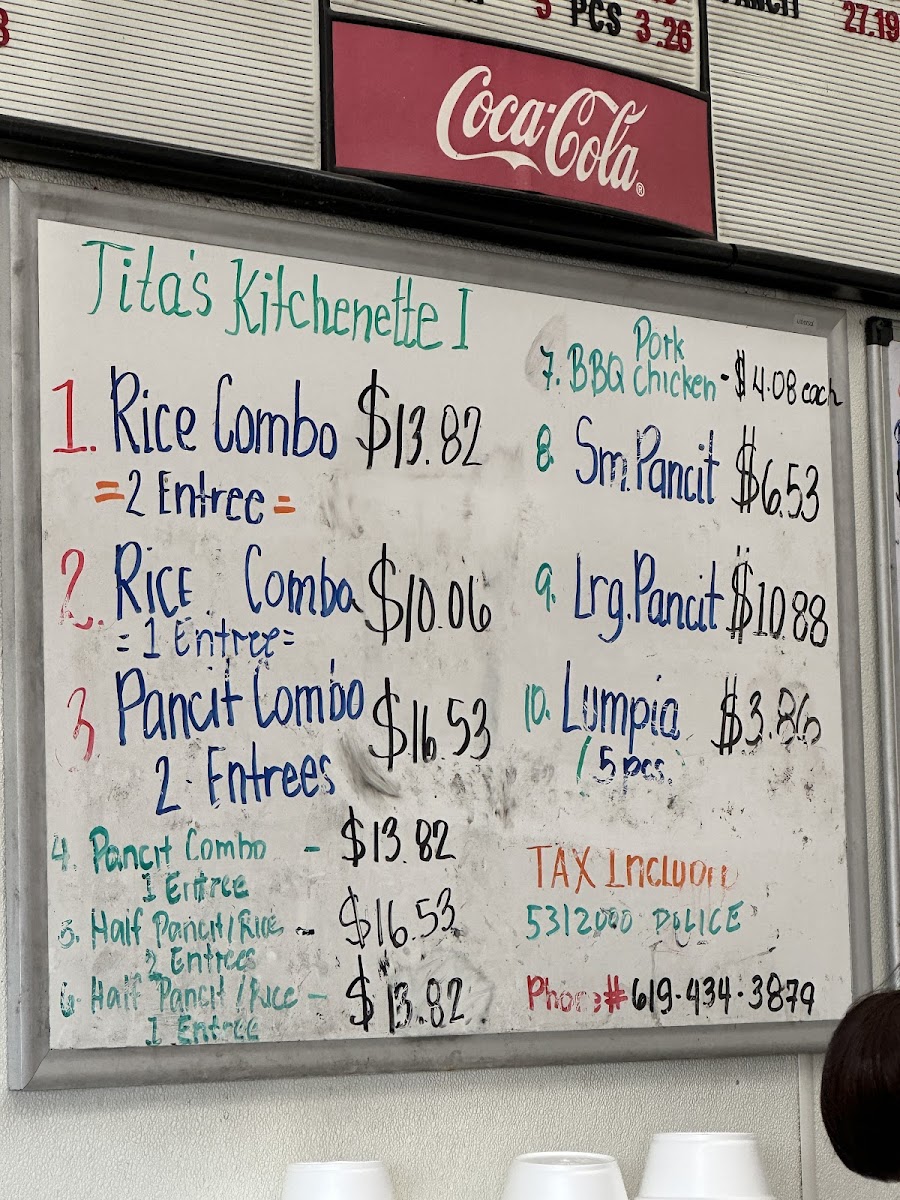 5 PCS 3.26
27.19
Coca-Cola®
Tita's Kitchenette I
1. Rice Combo $13.82
=2 Entree=
2. Rice Combo $10.06
=1 Entree=
3 Pancit Combo $16.53
2 Entrees
4. Pancit Combo - $13.82
1 Entree
5. Half Pancit/Rice - $16.53
2 Entrees
6. Half Pancit/Rice - $13.82
1 Entree
Pork
7. BBQ Chicken - $4.08 each
8. Sm. Pancit $6.53
9. Lrg. Pancit $10.88
10. Lumpia $3.86
(5 pcs.
TAX Includ
5312000 POLICE
Phone# 619-434-3879